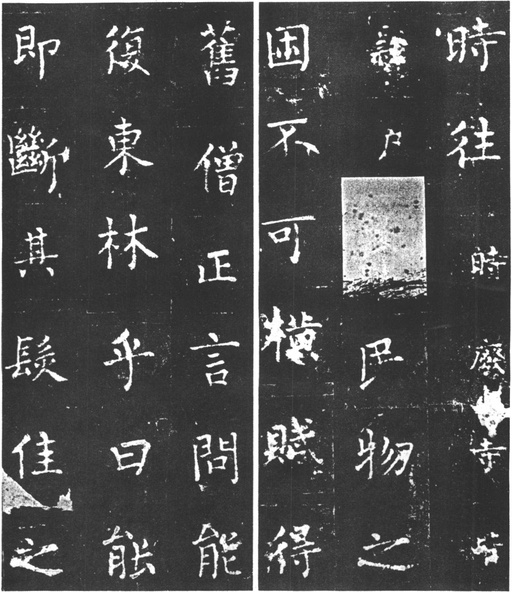 時往時廢寺占
户民物之
困不可橫賦得
舊僧正言問能
復東林乎曰能
即斷其髮住之